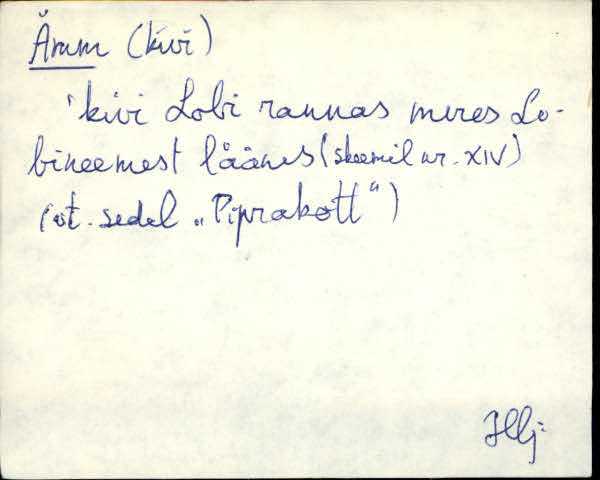 Ämm (kivi)
'kivi Lobi rannas meres Lo-
bineemest läänes (skeemil nr. XIV)
(vt. sedel „Piprakott")
Hlj: